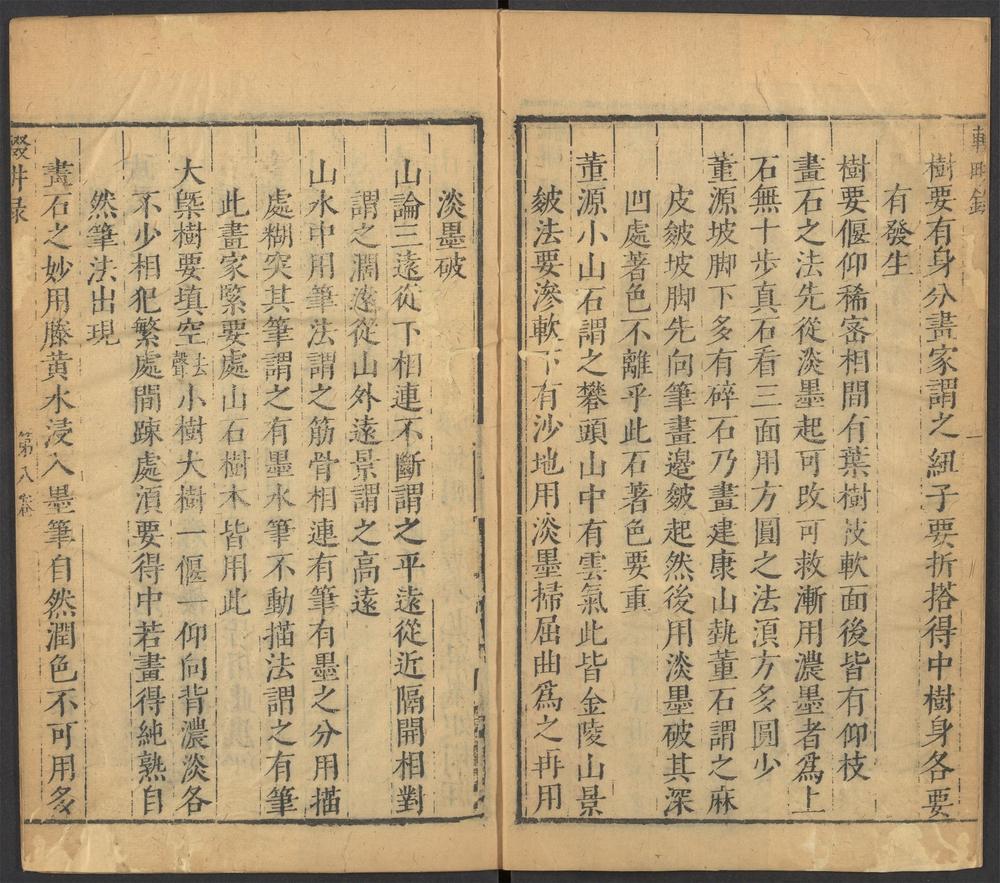 輟畊錄
樹要有身分畫家謂之紐子要折搭得中樹身各要
有發生
樹要偃仰稀密相間有葉樹枝軟面後皆有仰枝
畫石之法先從淡墨起可改可救漸用濃墨者爲上
石無十步真石看三面用方圓之法湏方多圓少
董源坡脚下多有碎石乃畫建康山埶董石謂之麻
皮皴坡脚先向筆畫邊皴起然後用淡墨破其深
凹處著色不離乎此石著色要重
董源小山石謂之礬頭山中有雲氣此皆金陵山景
皴法要滲軟下有沙地用淡墨掃屈曲爲之再用
淡墨破
山論三遠從下相連不斷謂之平遠從近隔開相對
謂之濶遠從山外遠景謂之高遠
山水中用筆法謂之筋骨相連有筆有墨之分用描
處糊突其筆謂之有墨水筆不動描法謂之有筆
此畫家緊要處山石樹木皆用此
大槩樹要塡空去聲小樹大樹一偃一仰向背濃淡各
不少相犯繁處間踈處湏要得中若畫得純熟自
然筆法出現
畫石之妙用藤黄水浸入墨筆自然潤色不可用多
輟畊錄
第八卷